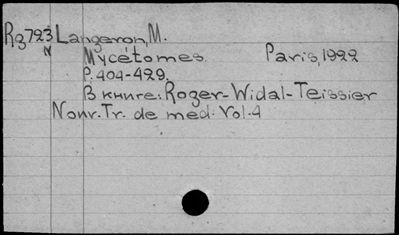 Rz723 Langeron, M.
N Mycétomes. Paris, 1922
P. 404-429.
В книге: Roger-Widal-Teissier
Nouv. Tr. de med. Vol. 4